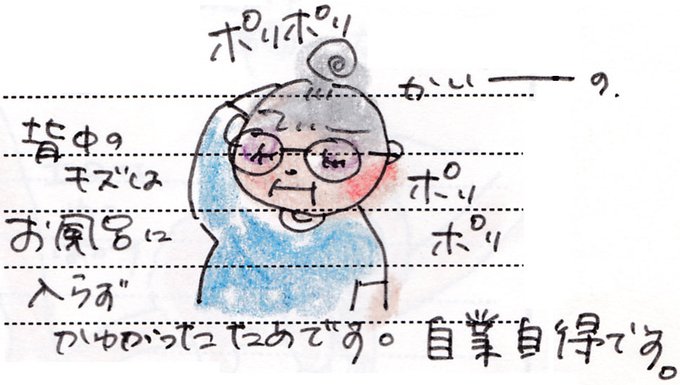 ポリポリ
かいーの.
背中の
モズは
お風呂に
入らず
かゆかったためです。自業自得です。
ポリ
ポリ